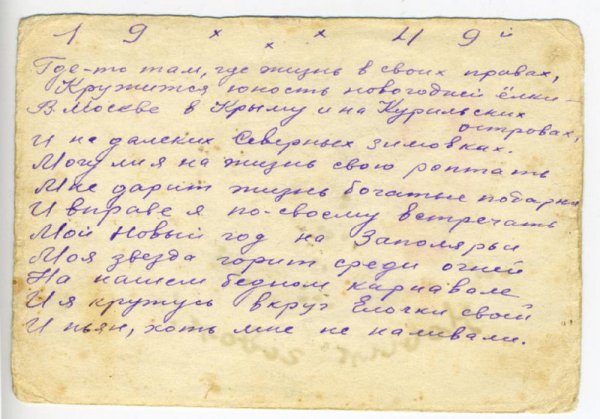 19 × × × 49й
Где-то там, где жизнь в своих правах,
Кружится юность новогодней ёлки –
В Москве в Крыму и на Курильских
островах,
И на далских Северных зимовках.
Могу ли я на жизнь свою роптать
Мне дарит жизнь богатые подарки
И вправе я по-своему встречать
Мой Новый год на Заполярьи
Моя звезда горит среди огней
На нашем бедном карнавале
И я кружусь вкруг Ёлочки свой
И пьян, хоть мне не наливали.